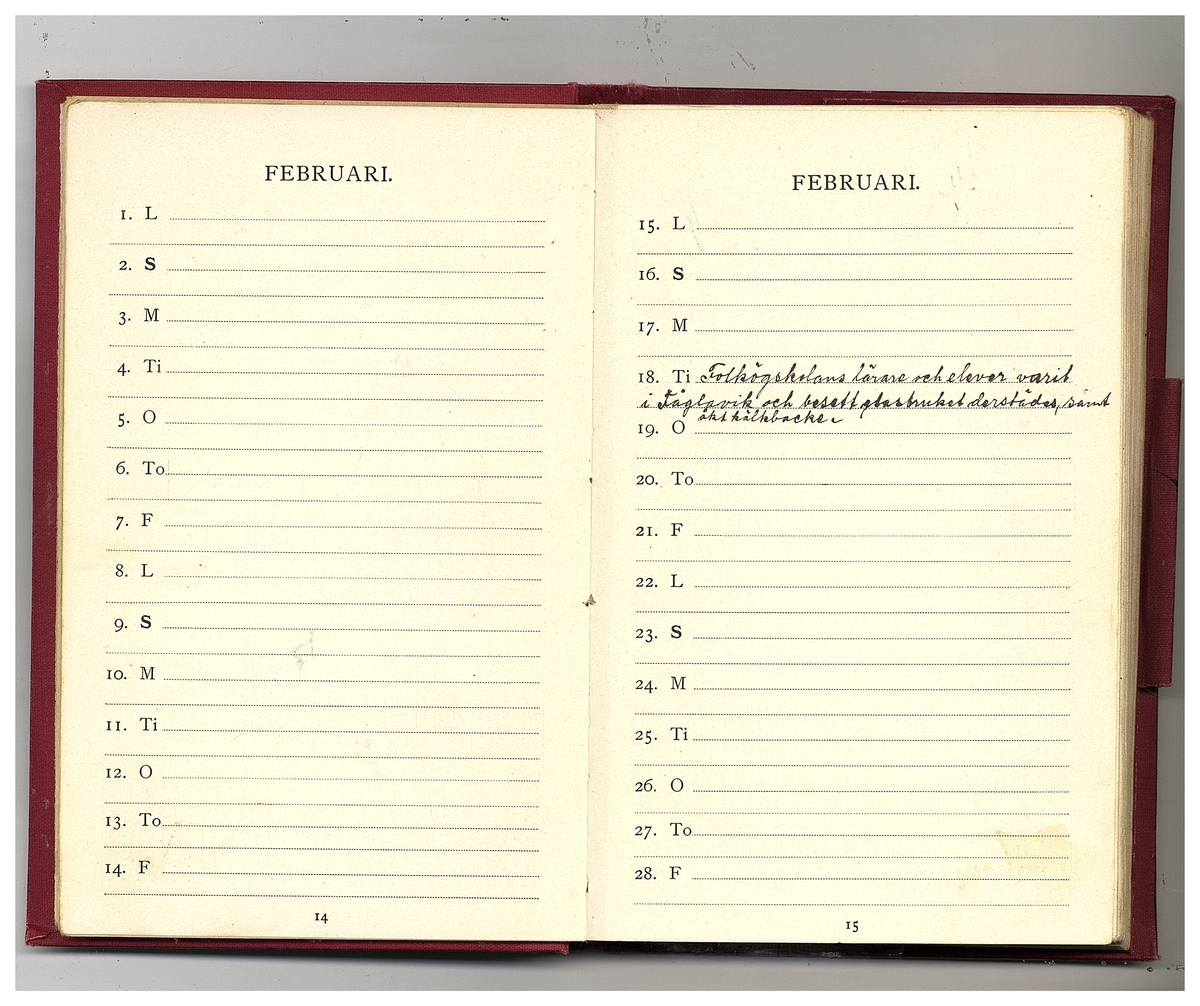 FEBRUARI.
1. L
2. S
3. M
4. Ti
5. O
6. To
7. F
8. L
9. S
10. M
11. Ti
12. O
13. To
14. F
14
FEBRUARI.
15. L
16. S
17. M
18. Ti Folkögskolans lärare och elever varit
i Fåglavik och besett glasbruket derstädes, samt
åkt kälkbacke.
19. O
20. To
21. F
22. L
23. S
24. M
25. Ti
26. O
27. To
28. F
15